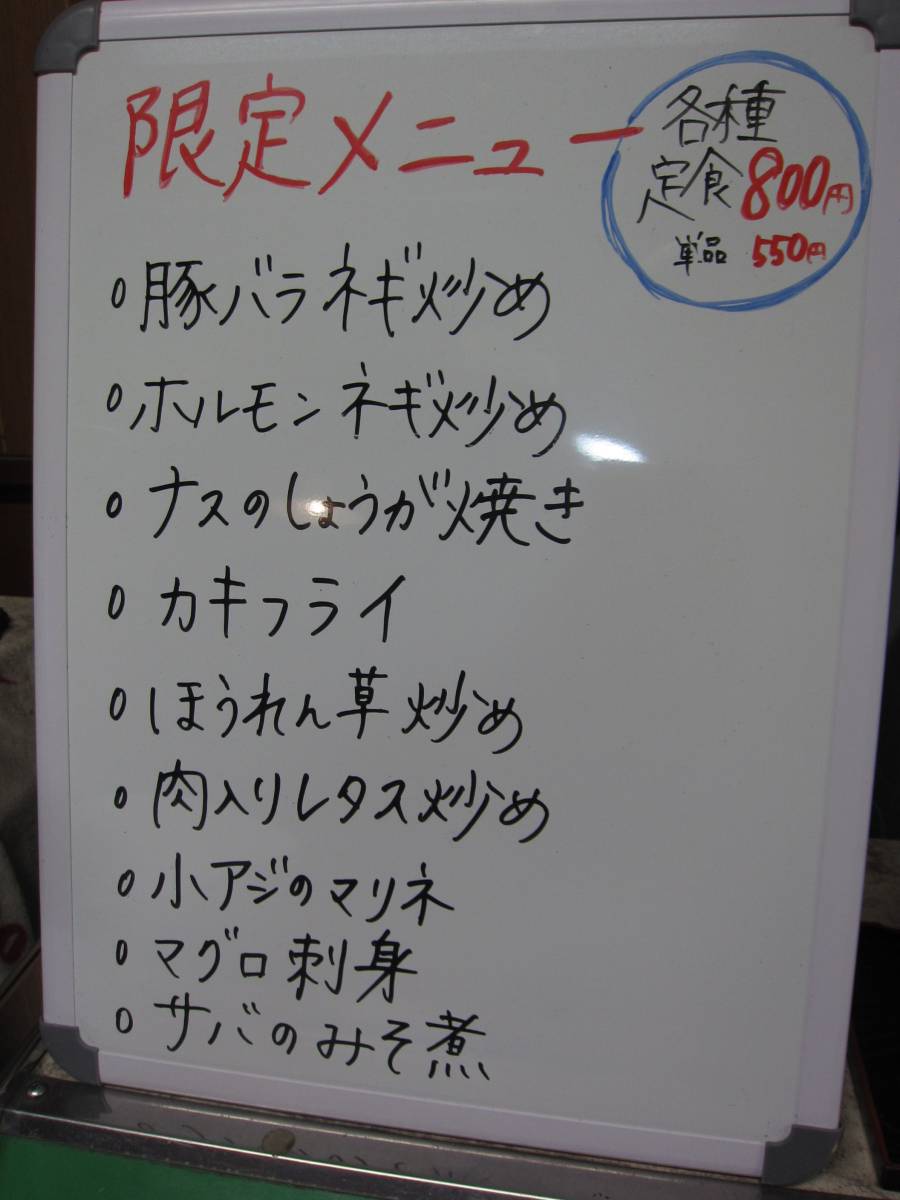 限定メニュー
各種
定食800円
単品 550円
○豚バラネギ炒め
○ホルモンネギ炒め
○ナスのしょうが焼き
○カキフライ
○ほうれん草炒め
○肉入りレタス炒め
○小アジのマリネ
○マグロ刺身
○サバのみそ煮